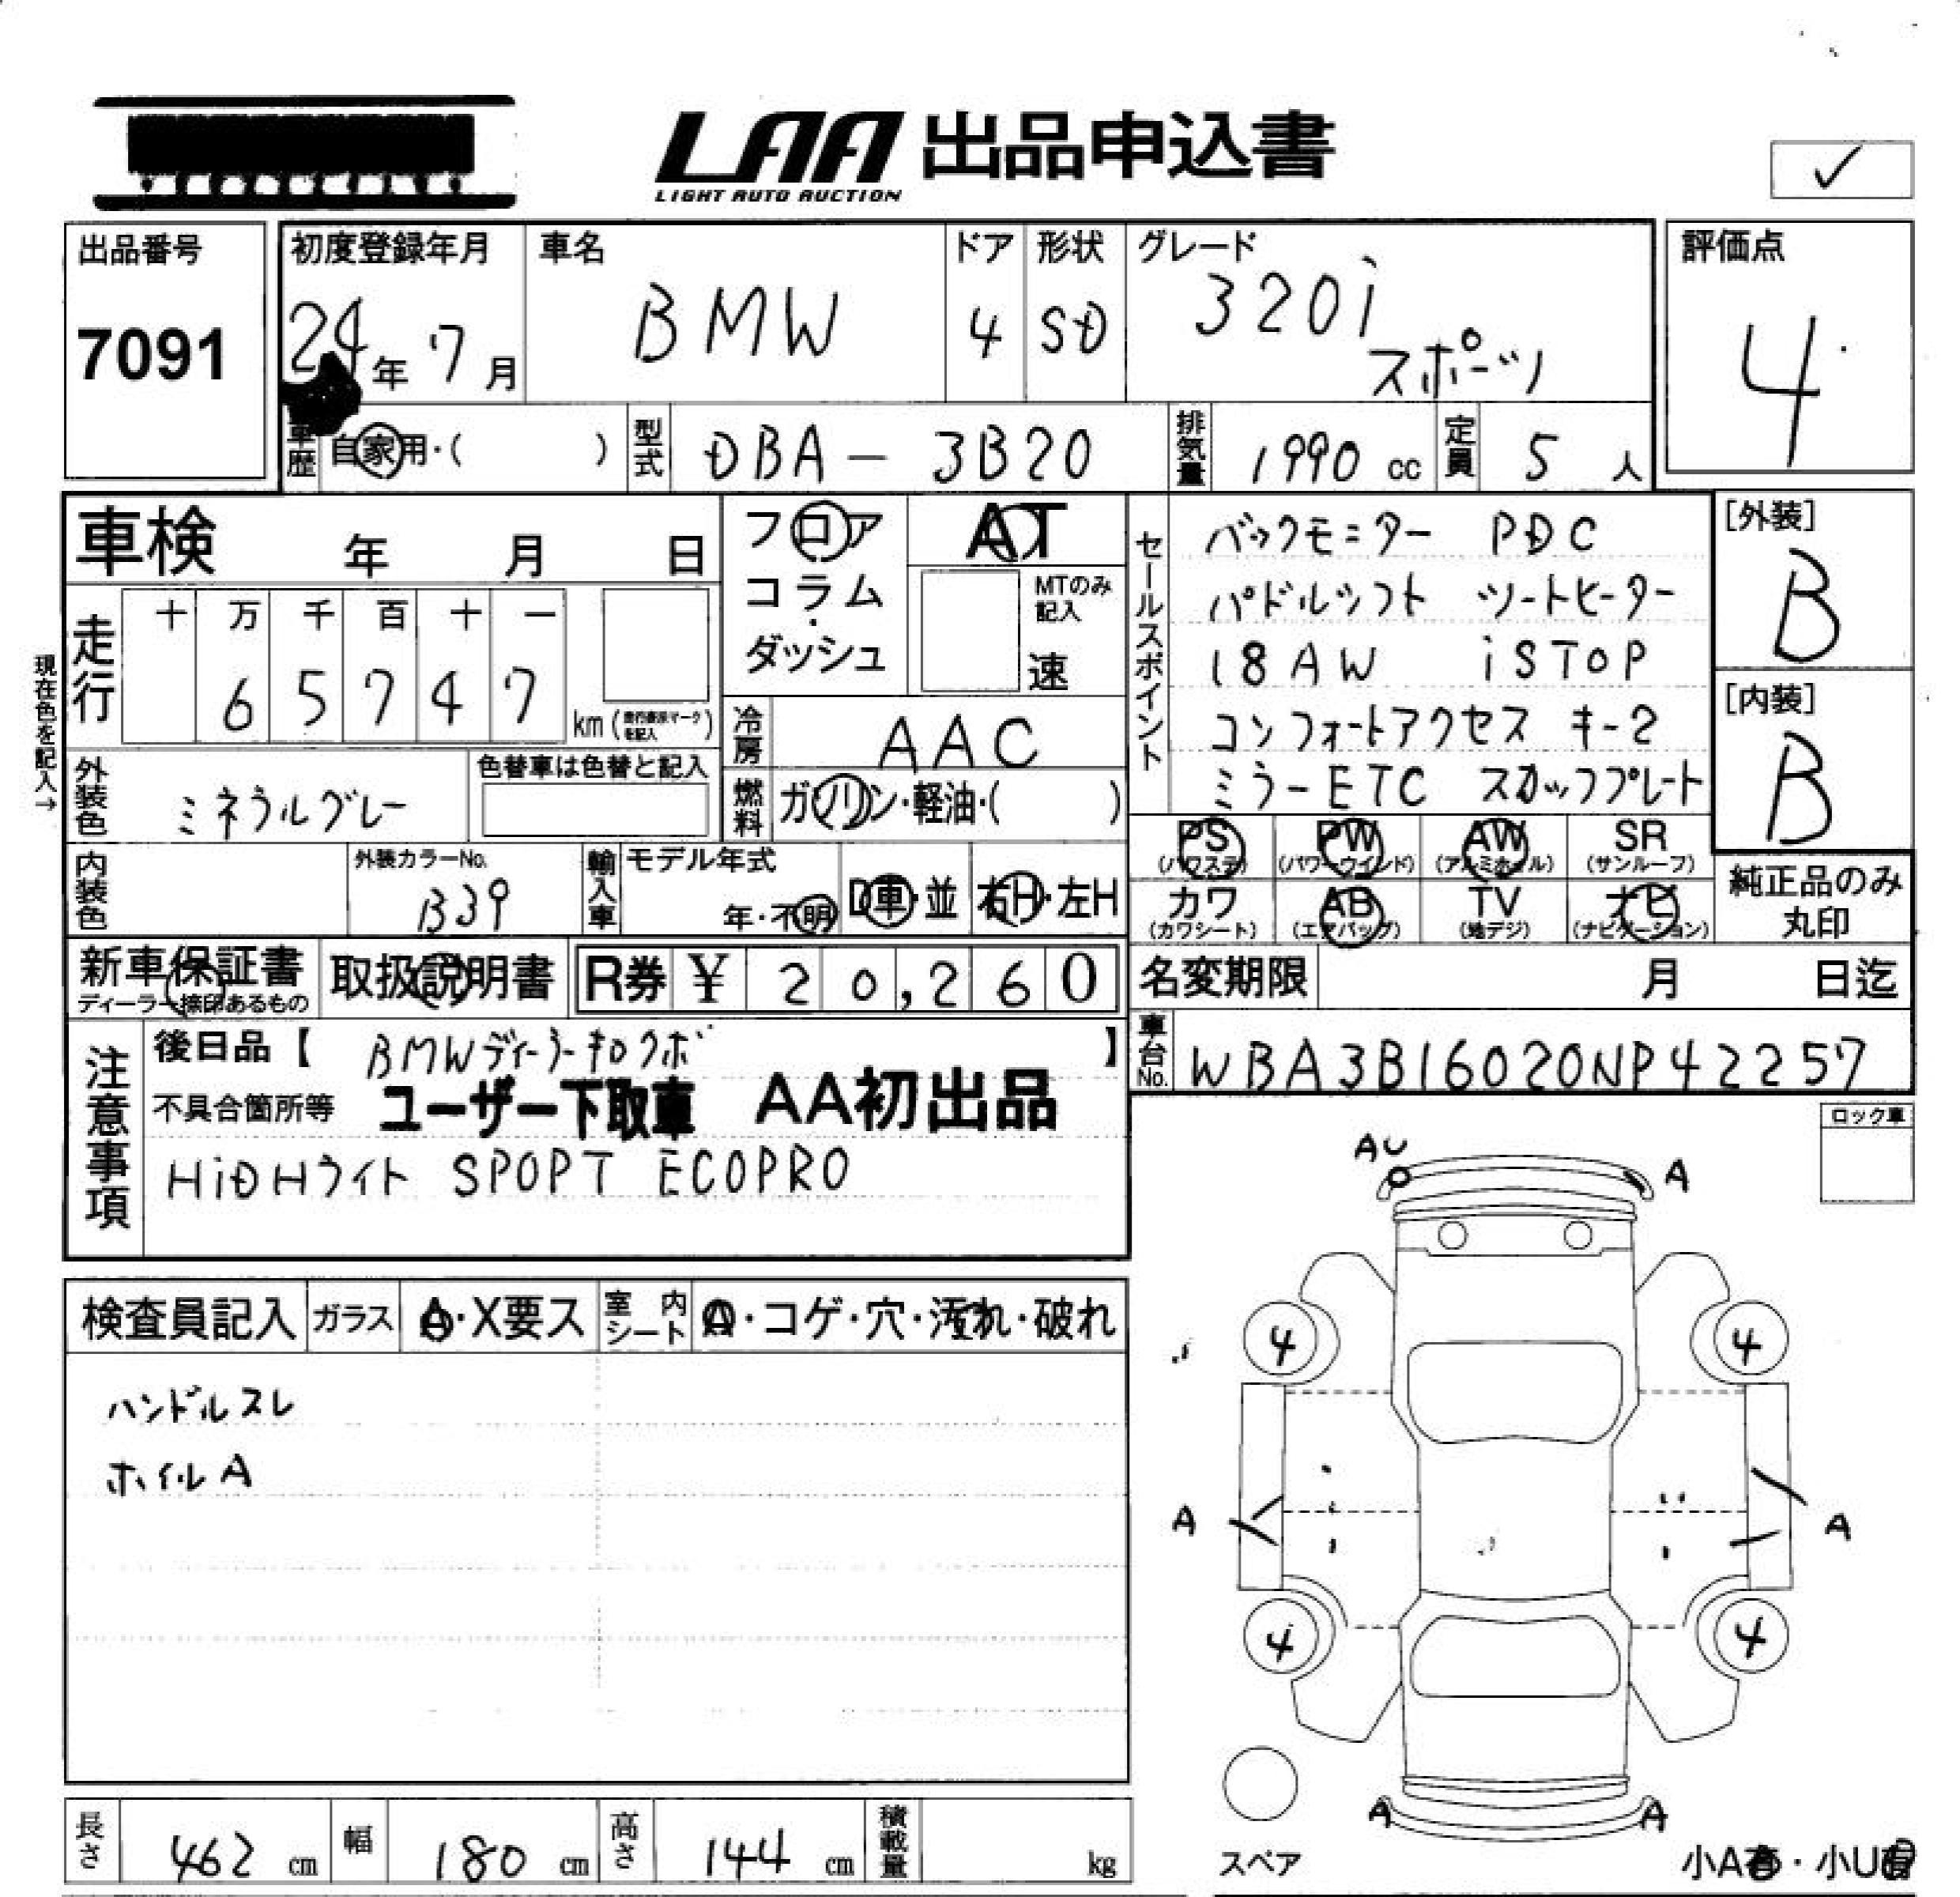 LAA 出品申込書
LIGHT AUTO AUCTION
✓
出品番号
7091
初度登録年月
24年 7月
車名
BMW
ドア
4
形状
SD
グレード
320i
スポーツ
評価点
4
車歴 自家用・( )
型式 DBA-3B20
排気量 1990 cc
定員 5 人
車検 年 月 日
フロア
コラム
・
ダッシュ
AT
MTのみ
記入
速
セールスポイント
バックモニター PDC
パドルシフト シートヒーター
18AW iSTOP
コンフォートアクセス キー2
ミラーETC スカッフプレート
[外装]
B
[内装]
B
現在色を記入→
走行
十 万 千 百 十 一
6 5 7 4 7
km (走行表示マークを記入)
冷房 AAC
燃料 ガソリン・軽油・( )
外装色 ミネラルグレー
色替車は色替と記入
内装色
外装カラーNo.
B39
輸入車
モデル年式
年・不明
D車・並
右H・左H
PS (パワステ)
PW (パワーウインド)
AW (アルミホイル)
SR (サンルーフ)
カワ (カワシート)
AB (エアバッグ)
TV (地デジ)
ナビ (ナビゲーション)
純正品のみ
丸印
新車保証書
ディーラー捺印あるもの
取扱説明書
R券 ¥ 20,260
名変期限 月 日迄
車台No. WBA3B16020NP42257
注意事項
後日品【 BMWディーラーキロクボ 】
不具合箇所等 ユーザー下取車 AA初出品
HiDHライト SPOPT ECOPRO
ロック車
検査員記入
ガラス A・X要ス
室内シート A・コゲ・穴・汚れ・破れ
ハンドルスレ
ホイルA
AU
A
4
4
A
A
4
4
A
A
スペア
小A・小U
長さ 462 cm
幅 180 cm
高さ 144 cm
積載量 kg